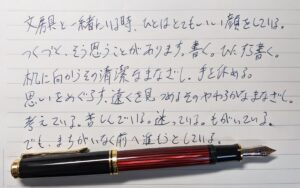 文房具と一緒にいる時、ひとはとてもいい顔をしている。
つくづく、そう思うことがあります。書く。ひたすら書く。
机に向かうその清潔なまなざし。手を休める。
思いをめぐらす、遠くを見つめるそのやわらかなまなざし。
考えている。苦しんでいる。迷っている。もがいている。
でも、まちがいなく前へ進もうとしている。